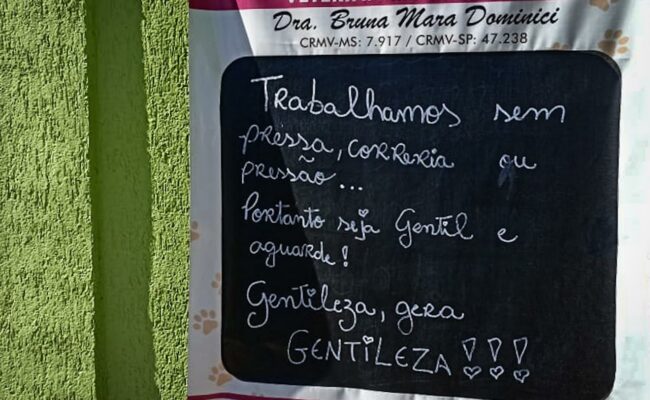 Dra. Bruna Mara Dominici
CRMV-MS: 7.917 / CRMV-SP: 47.238
Trabalhamos sem
pressa, correria ou
pressão...
Portanto seja Gentil e
aguarde!
Gentileza, gera
GENTILEZA!!!